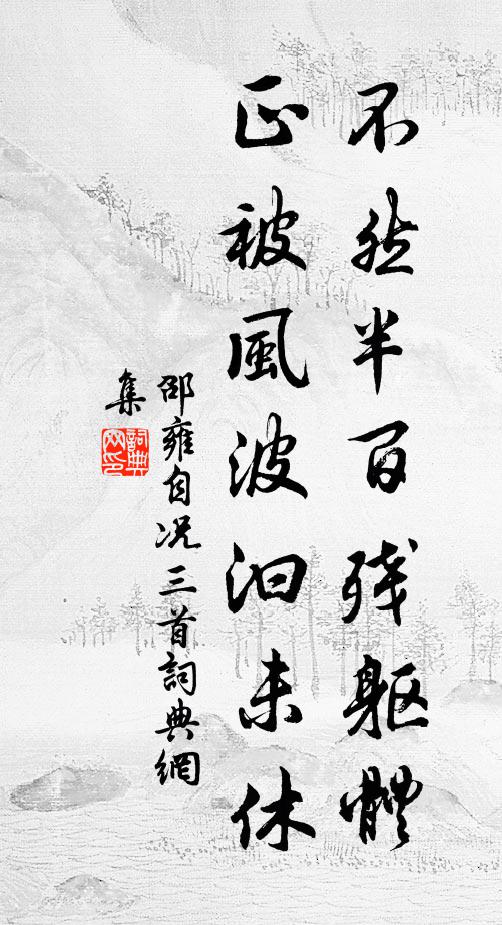 不然半百殘軀體
正被風波汩未休
邵雍自况三首詞典網
集
詞典
网印